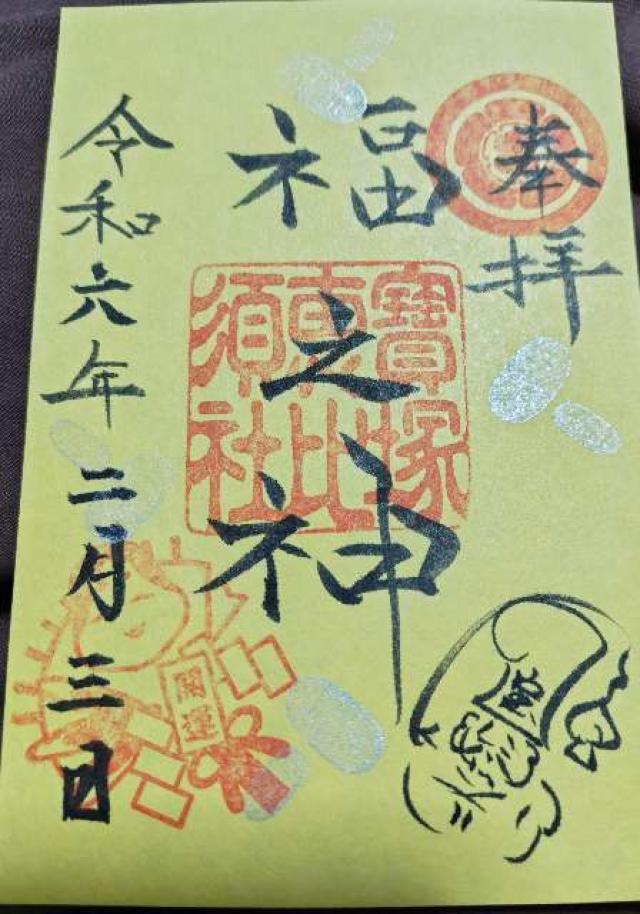 奉拝
福之神
寶塚
恵比
須社
令和六年二月三日
開運